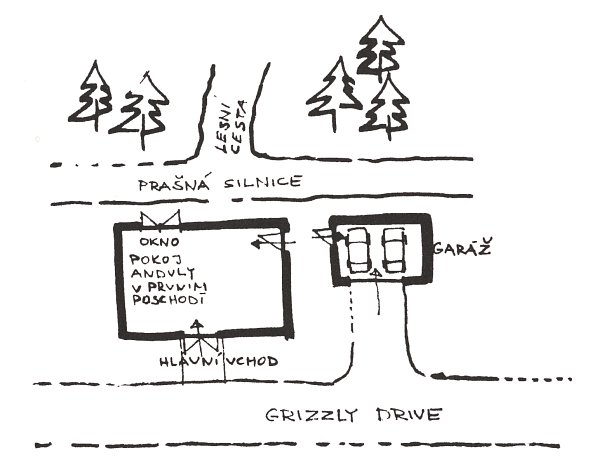 LESNÍ
CESTA
PRAŠNÁ SILNICE
OKNO
POKOJ
ANDULY
V PRVNIM
POSCHODÍ
GARÁŽ
HLAVNÍ VCHOD
GRIZZLY DRIVE